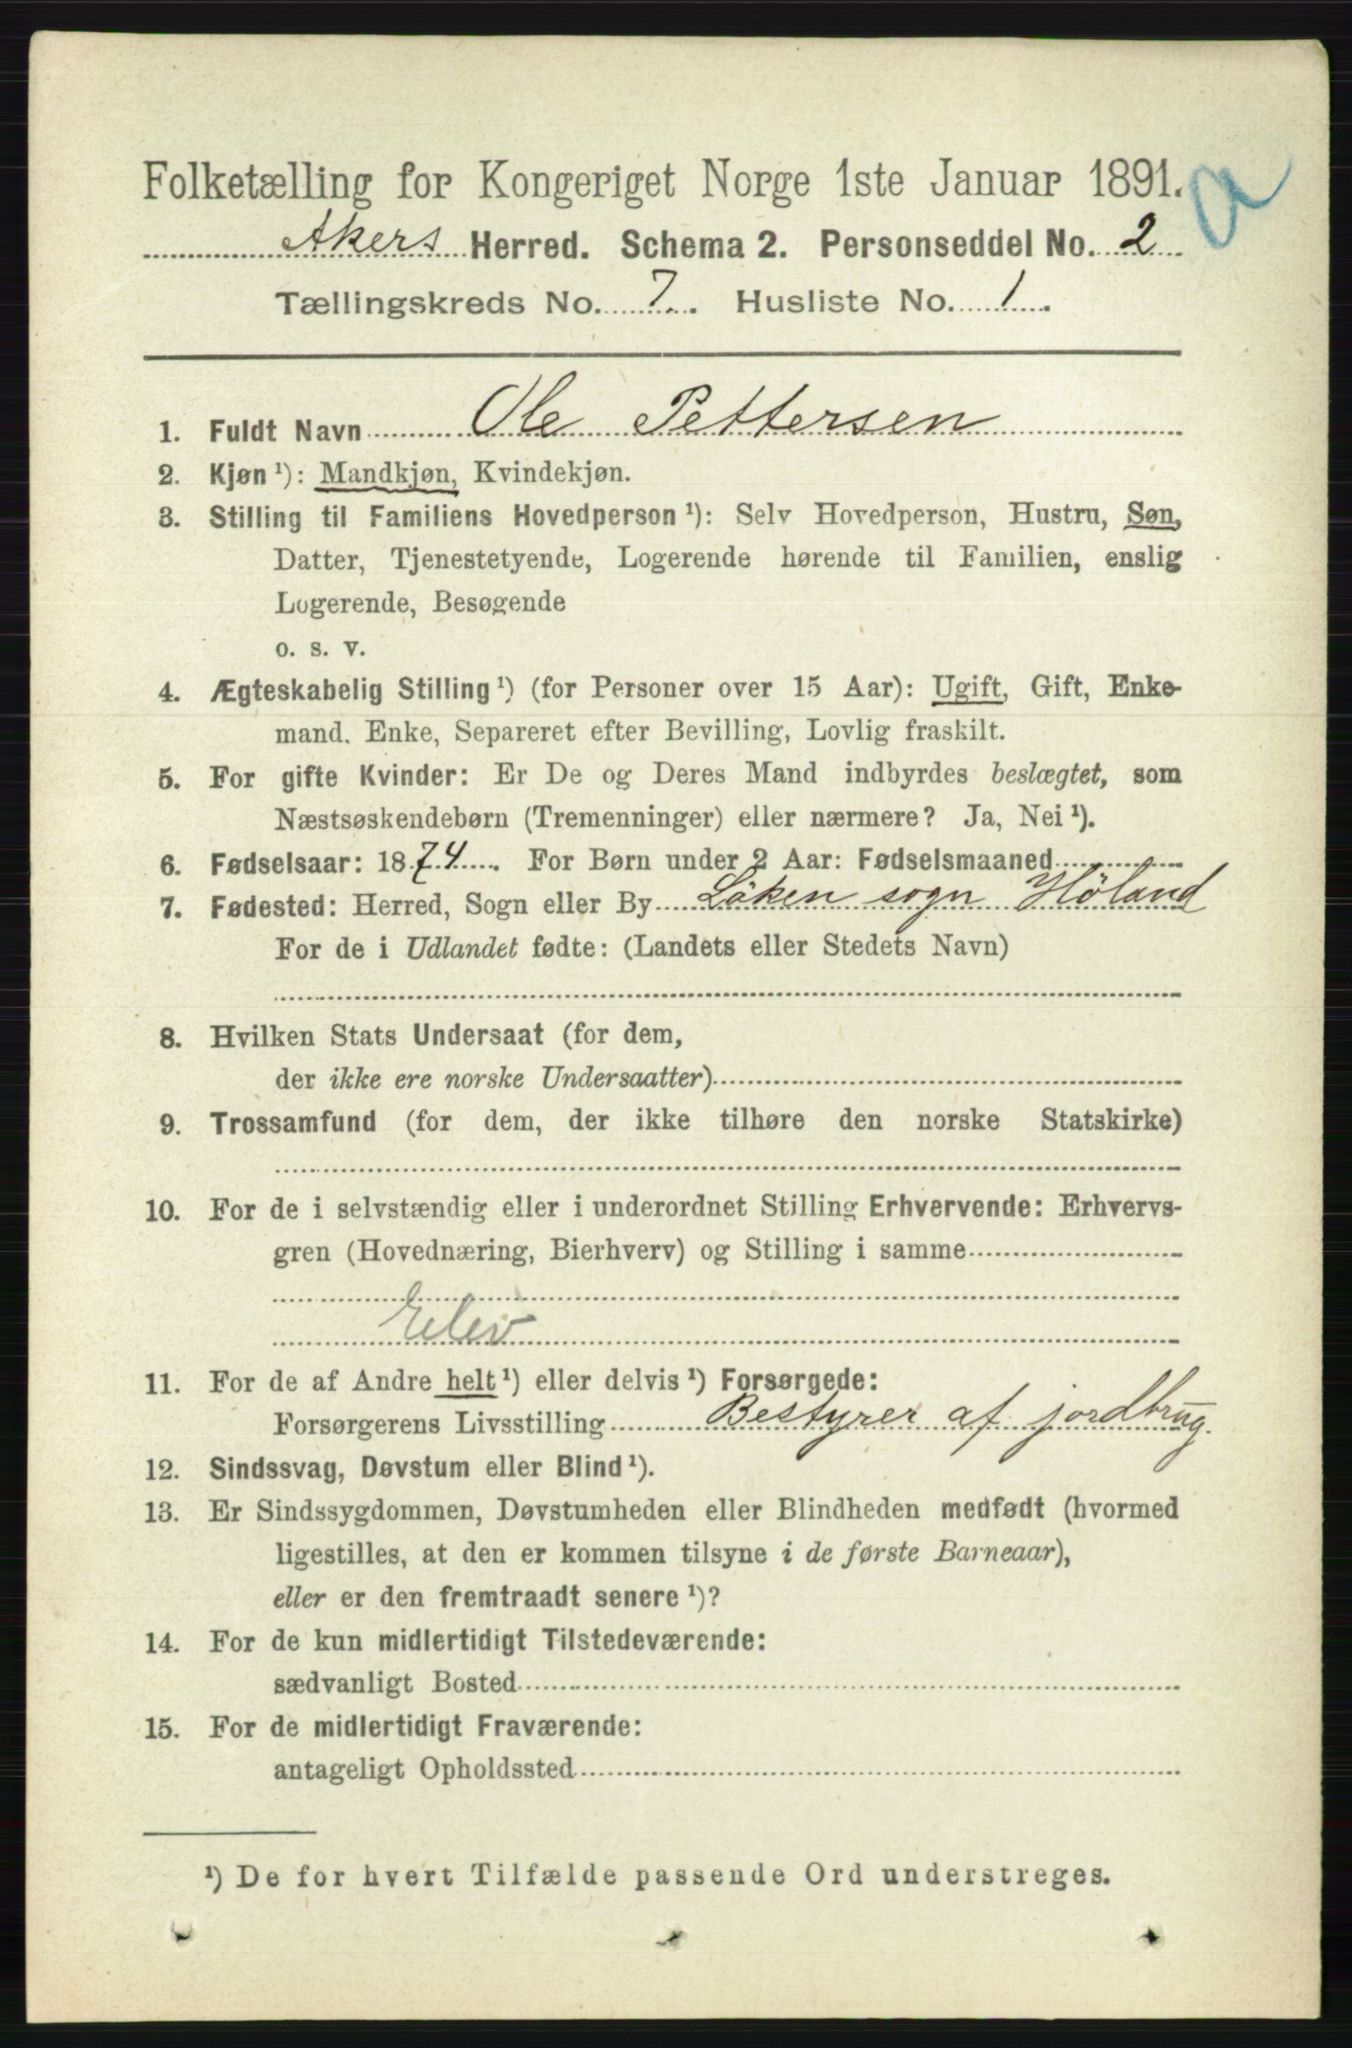 Folketælling for Kongeriget Norge 1ste Januar 1891.
a
Akers Herred. Schema 2. Personseddel No. 2
Tællingskreds No. 7. Husliste No. 1.
1. Fuldt Navn Ole Pettersen
2. Kjøn ¹): Mandkjøn, Kvindekjøn.
3. Stilling til Familiens Hovedperson ¹): Selv Hovedperson, Hustru, Søn,
Datter, Tjenestetyende, Logerende hørende til Familien, enslig
Logerende, Besøgende
o. s. v.
4. Ægteskabelig Stilling ¹) (for Personer over 15 Aar): Ugift, Gift, Enke-
mand, Enke, Separeret efter Bevilling, Lovlig fraskilt.
5. For gifte Kvinder: Er De og Deres Mand indbyrdes beslægtet, som
Næstsøskendebørn (Tremenninger) eller nærmere? Ja, Nei ¹).
6. Fødselsaar: 1874. For Børn under 2 Aar: Fødselsmaaned
7. Fødested: Herred, Sogn eller By Löken sogn Höland
For de i Udlandet fødte: (Landets eller Stedets Navn)
8. Hvilken Stats Undersaat (for dem,
der ikke ere norske Undersaatter)
9. Trossamfund (for dem, der ikke tilhøre den norske Statskirke)
10. For de i selvstændig eller i underordnet Stilling Erhvervende: Erhvervs-
gren (Hovednæring, Bierhverv) og Stilling i samme
Elev
11. For de af Andre helt ¹) eller delvis ¹) Forsørgede:
Forsørgerens Livsstilling Bestyrer af jordbrug.
12. Sindssvag, Døvstum eller Blind ¹).
13. Er Sindssygdommen, Døvstumheden eller Blindheden medfødt (hvormed
ligestilles, at den er kommen tilsyne i de første Barneaar),
eller er den fremtraadt senere ¹)?
14. For de kun midlertidigt Tilstedeværende:
sædvanligt Bosted
15. For de midlertidigt Fraværende:
antageligt Opholdssted
¹) De for hvert Tilfælde passende Ord understreges.